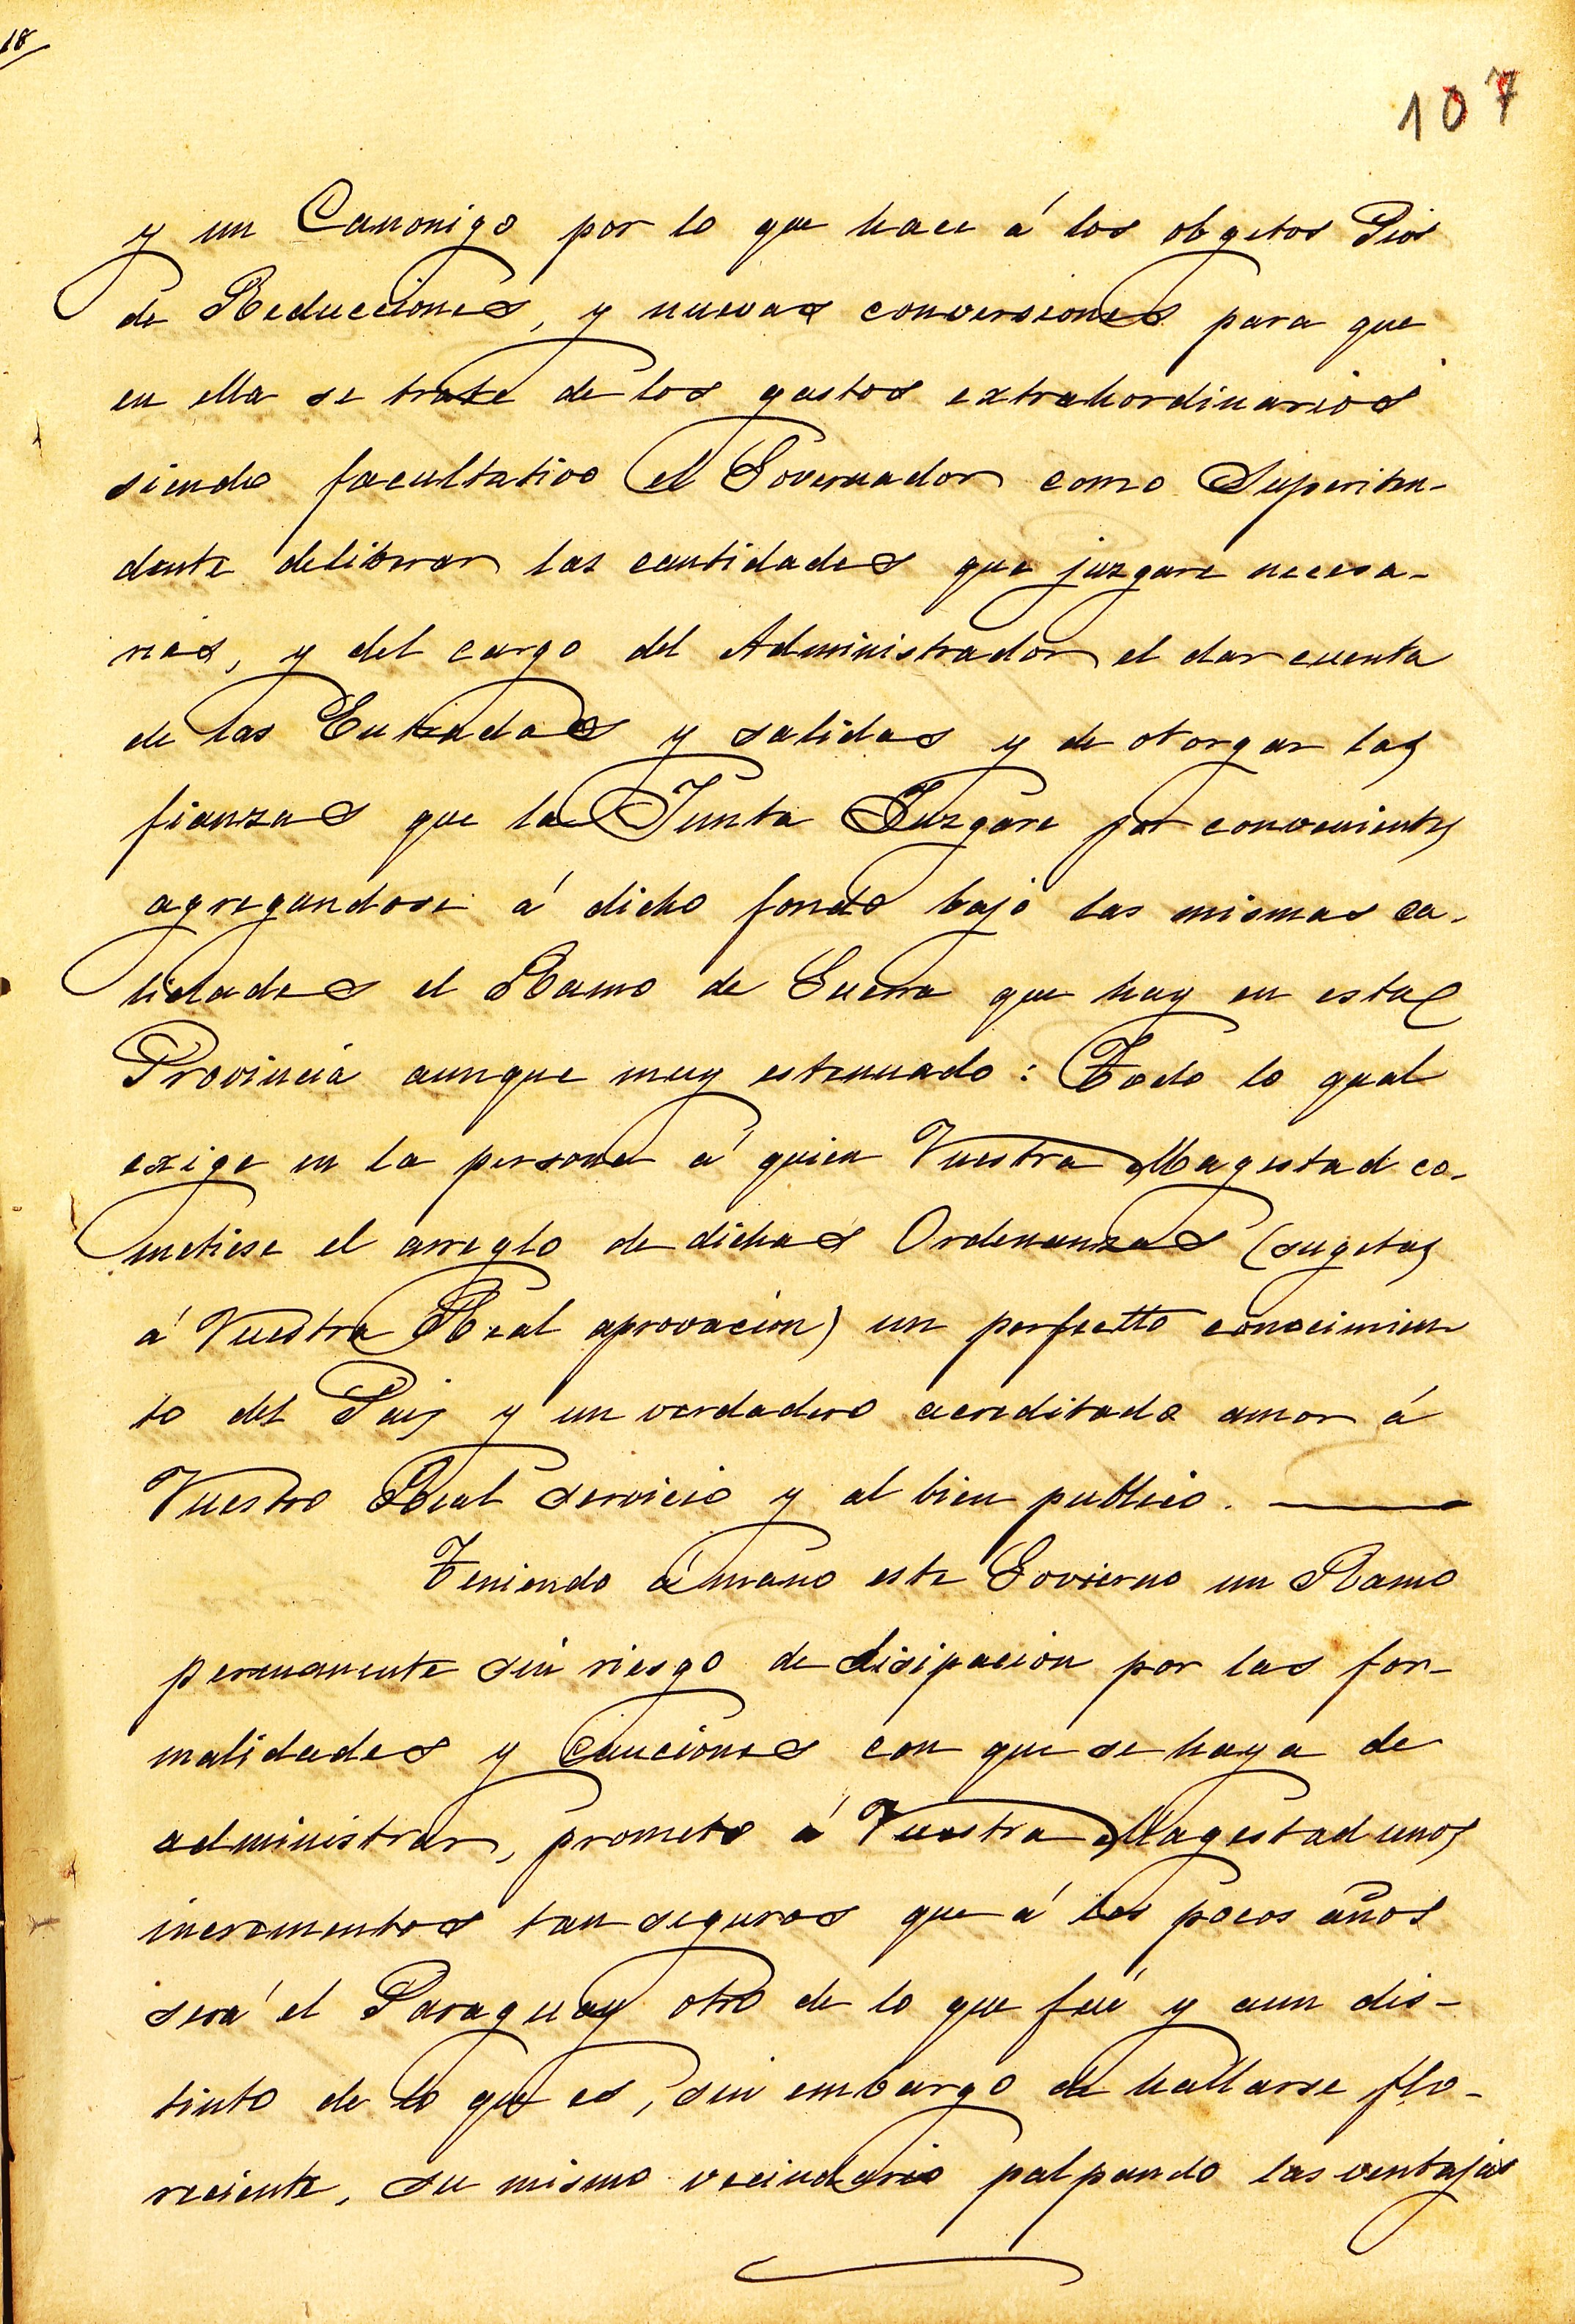 18
107
y un Canonigo por lo que hace á los obgetos Pios
de Reducciones, y nuevas conversiones para que
en ella se trate de los gastos extrahordinarios
siendo facultativo el Governador como Superiten-
dente deliberar las cantidades que juzgare necesa-
rias, y del cargo del Administrador el dar cuenta
de las Entradas y salidas y de otorgar las
fianzas que la Junta Juzgare por convenientes
agregandose á dicho fondo bajo las mismas ca-
lidades el Ramo de Guerra que hay en esta
Provincia aunque muy estenuado: Todo lo qual
exige en la persona á quien Vuestra Magestad co-
metiese el arreglo de dichas Ordenanzas (sugetas
á Vuestra Real aprovacion) un perfectto conocimien
to del Pais y un verdadero acreditado amor á
Vuestro Real servicio y al bien publico.
Teniendo á mano este Govierno un Ramo
permanente sin riesgo de disipacion por las for-
malidades y cauciones con que se haya de
administrar, prometo á Vuestra Magestad unos
incrementos tan seguros que á los pocos años
será el Paraguay otro de lo que fué y aun dis-
tinto de lo que es, sin embargo de hallarse flo-
reciente, su mismo vecindario palpando las ventajas